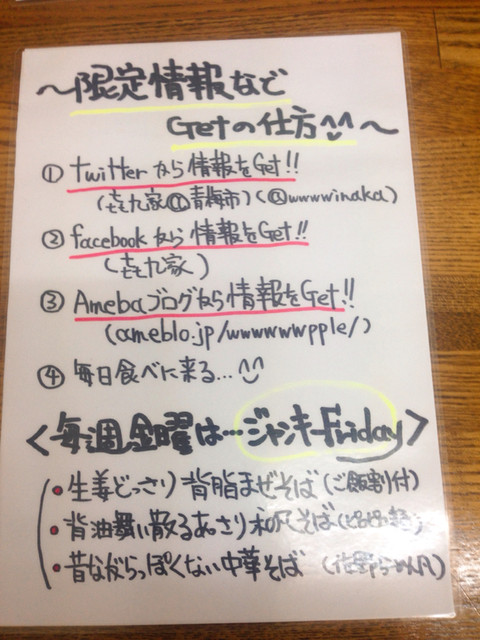 ～限定情報など
Getの仕方^^～
① twitterから情報をGet!!
(㐂九家@青梅市)(@wwwwinaka)
② facebookから情報をGet!!
(㐂九家)
③ Amebaブログから情報をGet!!
(ameblo.jp/wwwwwwpple/)
④ 毎日食べに来る…^^
<毎週金曜は…ジャンキーFriday>
・生姜どっさり背脂まぜそば(ご飯割付)
・背油舞い散るあっさり和風そば
・昔ながらっぽくない中華そば